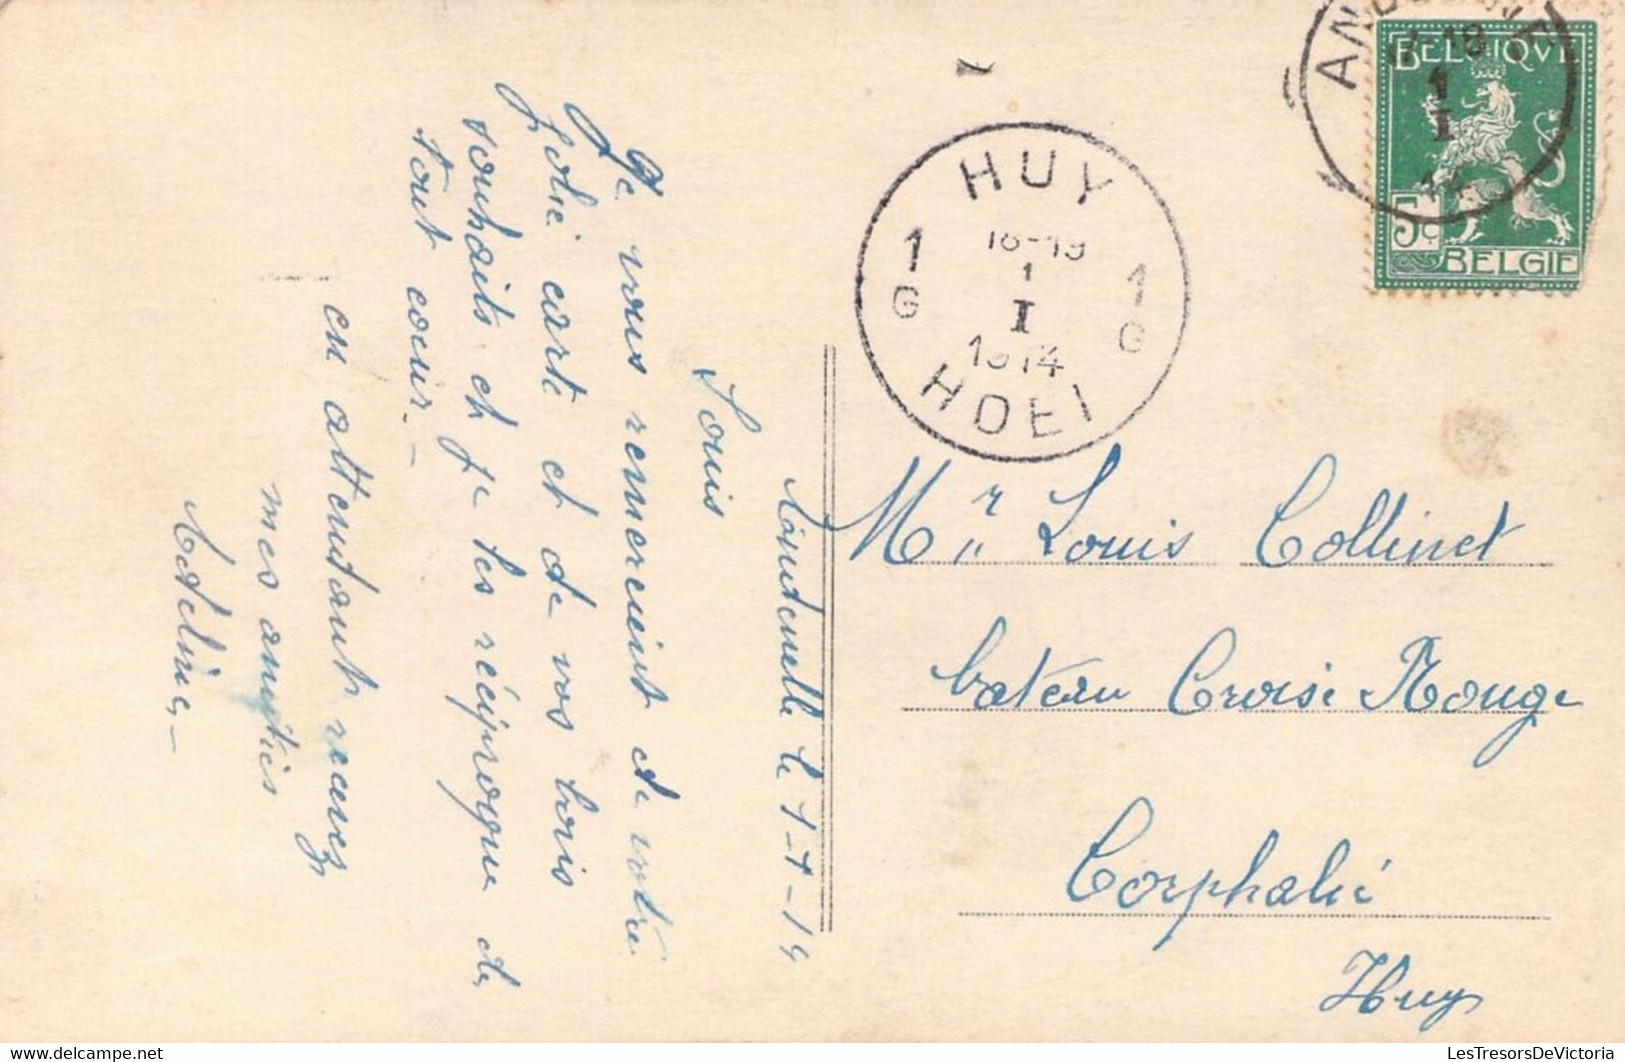 Louis
Je vous remerciant de votre
Jolie carte et de vos bons
souhaits et je les réciproque de
tout cœur. –
en attendant recevez
mes amitiés
Adeline. –
le 1-1-14
Mr Louis Collinet
bateau Croise Rouge
Corphalie
Huy
HUY
18-19
1
I
1914
1 G
1 G
HOEI
AN
1
I
14
BELGIQVE
5c
BELGIE
LesTresorsDeVictoria